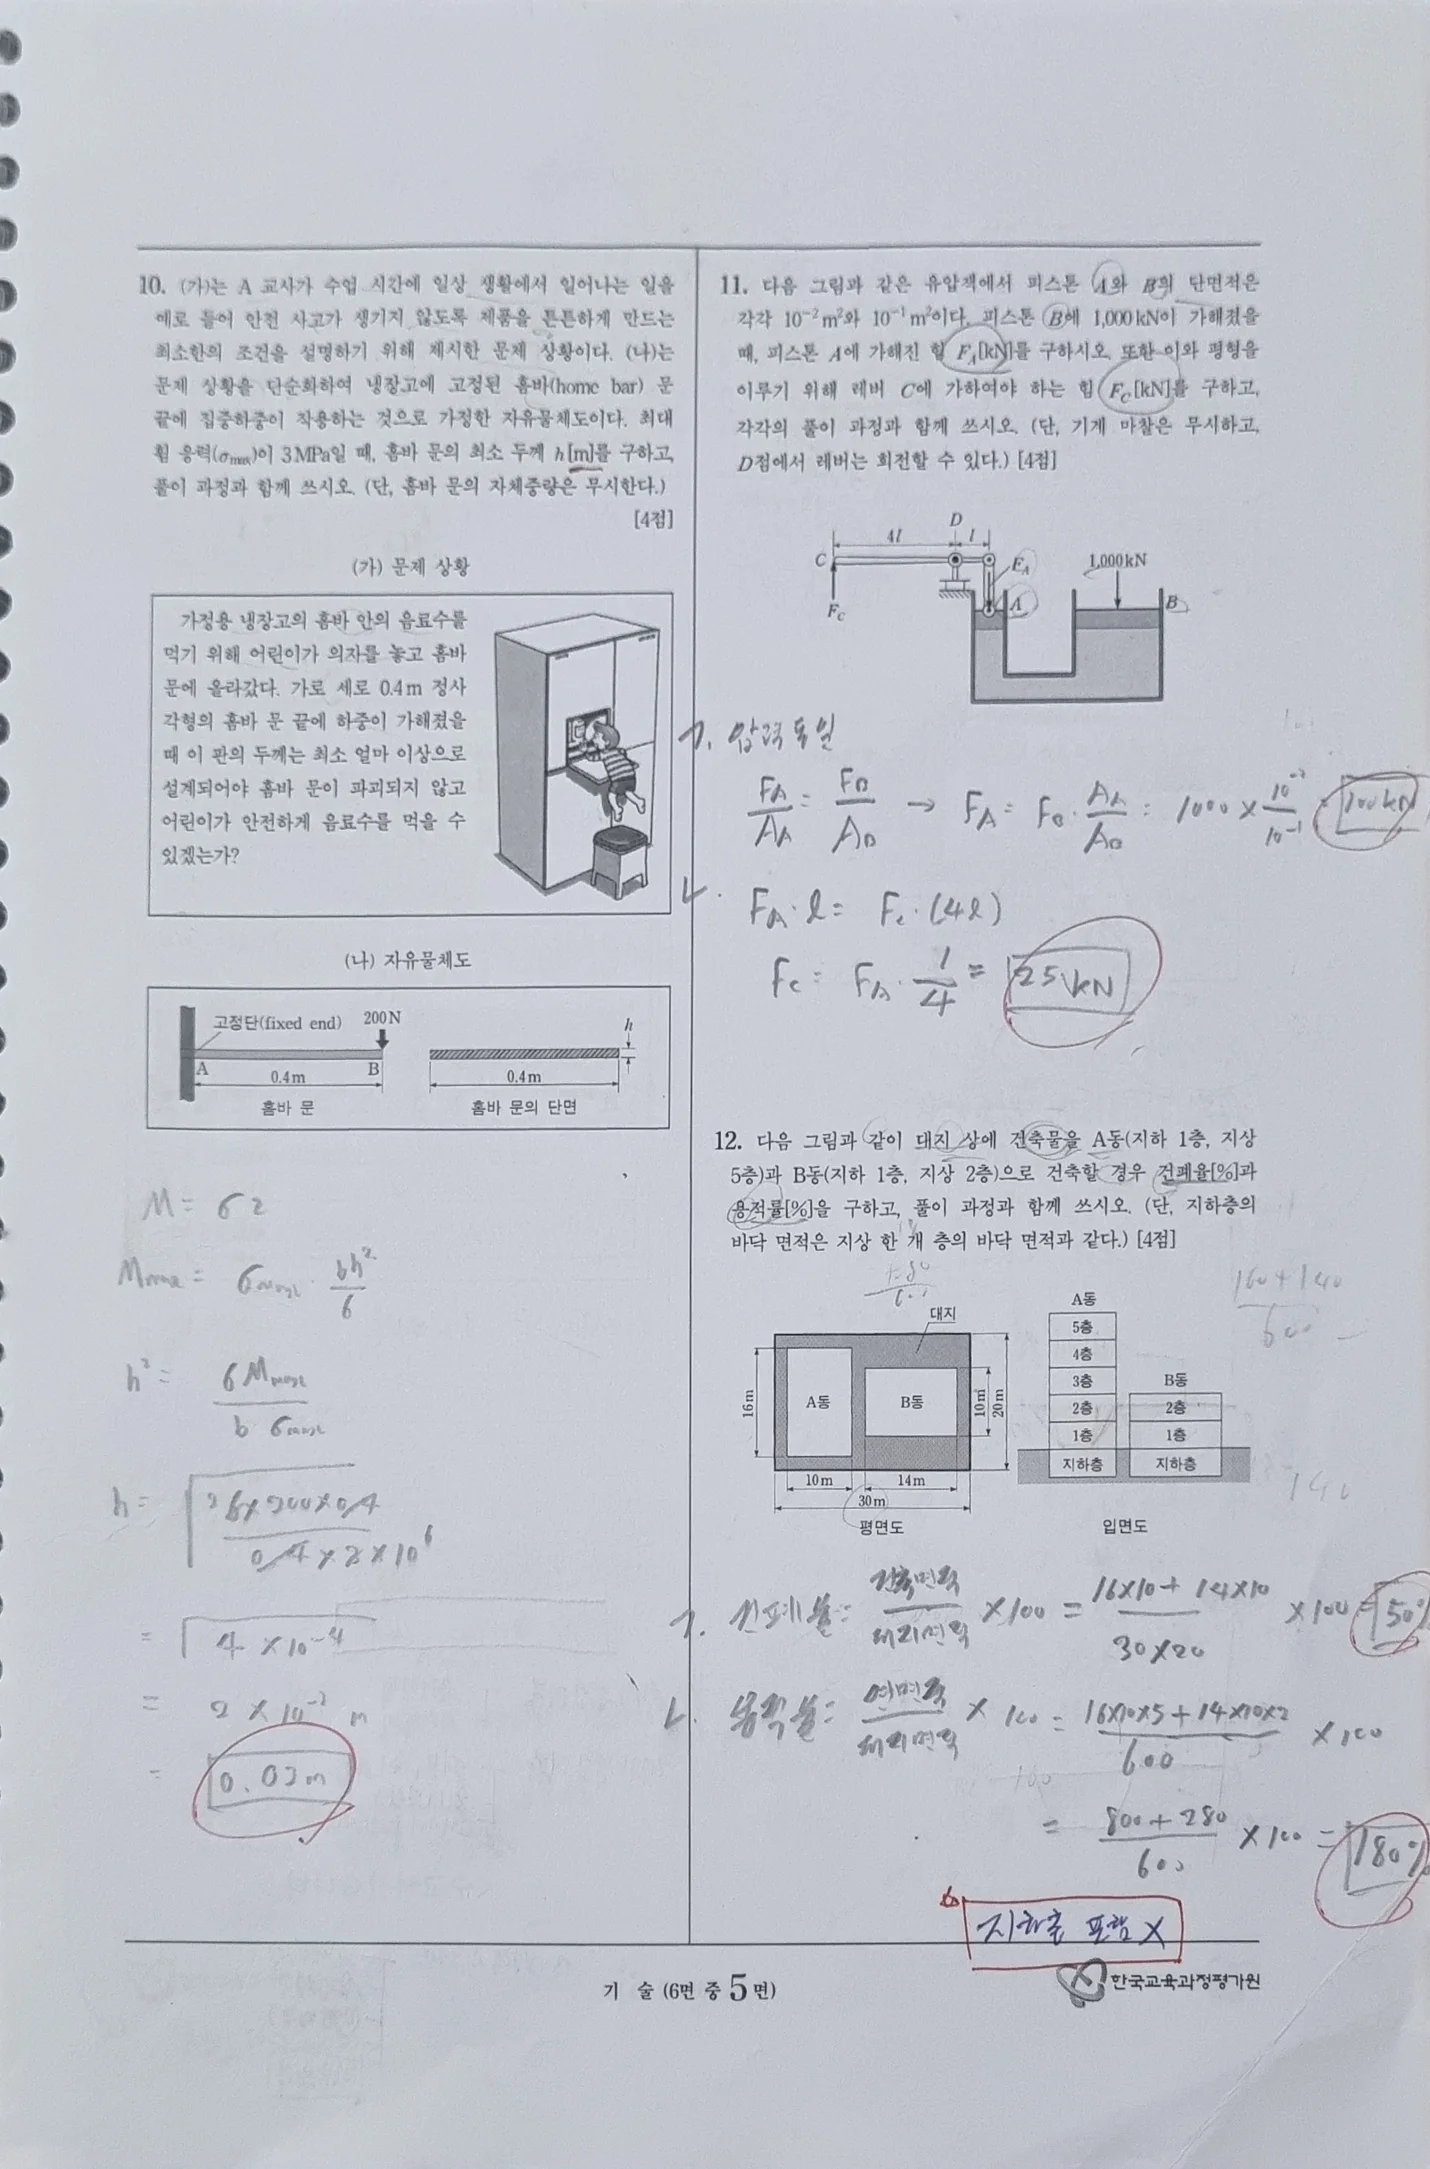 10. (가)는 A 교사가 수업 시간에 일상 생활에서 일어나는 일을
예로 들어 안전 사고가 생기지 않도록 제품을 튼튼하게 만드는
최소한의 조건을 설명하기 위해 제시한 문제 상황이다. (나)는
문제 상황을 단순화하여 냉장고에 고정된 홈바(home bar) 문
끝에 집중하중이 작용하는 것으로 가정한 자유물체도이다. 최대
휨 응력(σmax)이 3 MPa일 때, 홈바 문의 최소 두께 h[m]를 구하고,
풀이 과정과 함께 쓰시오. (단, 홈바 문의 자체중량은 무시한다.)
[4점]
(가) 문제 상황
가정용 냉장고의 홈바 안의 음료수를
먹기 위해 어린이가 의자를 놓고 홈바
문에 올라갔다. 가로 세로 0.4 m 정사
각형의 홈바 문 끝에 하중이 가해졌을
때 이 판의 두께는 최소 얼마 이상으로
설계되어야 홈바 문이 파괴되지 않고
어린이가 안전하게 음료수를 먹을 수
있겠는가?
(나) 자유물체도
고정단(fixed end) 200 N
h
A B
0.4 m 0.4 m
홈바 문 홈바 문의 단면
M = σz
Mmax = σmax · bh²/6
h² = 6Mmax / b σmax
= √4×10⁻⁴
= 2 × 10⁻² m
= 0.02m
11. 다음 그림과 같은 유압잭에서 피스톤 A와 B의 단면적은
각각 10⁻² m²와 10⁻¹ m²이다. 피스톤 B에 1,000 kN이 가해졌을
때, 피스톤 A에 가해진 힘 FA[kN]를 구하시오. 또한 이와 평형을
이루기 위해 레버 C에 가하여야 하는 힘 FC[kN]를 구하고,
각각의 풀이 과정과 함께 쓰시오. (단, 기계 마찰은 무시하고,
D점에서 레버는 회전할 수 있다.) [4점]
D
4l l
C FA 1,000 kN
FC A B
ㄱ. 압력 동일
FA/AA = FB/AB → FA = FB · AA/AB = 1000 × 10⁻²/10⁻¹ = 100kN
ㄴ. FA · l = Fc · (4l)
Fc = FA · 1/4 = 25kN
12. 다음 그림과 같이 대지 상에 건축물을 A동(지하 1층, 지상
5층)과 B동(지하 1층, 지상 2층)으로 건축할 경우 건폐율[%]과
용적률[%]을 구하고, 풀이 과정과 함께 쓰시오. (단, 지하층의
바닥 면적은 지상 한 개 층의 바닥 면적과 같다.) [4점]
160+140
600
대지
A동
5층
4층
3층 B동
2층 2층
1층 1층
지하층 지하층
16 m A동 B동 10 m 20 m
10 m 14 m
30 m
평면도 입면도
140
ㄱ. 건폐율 = 건축면적/대지면적 ×100 = 16×10+14×10 / 30×20 ×100 = 50%
ㄴ. 용적률 = 연면적/대지면적 × 100 = 16×10×5+14×10×2 / 600 × 100
= 800+280 / 600 × 100 = 180%
지하층 포함 X
기 술 (6면 중 5면)
한국교육과정평가원